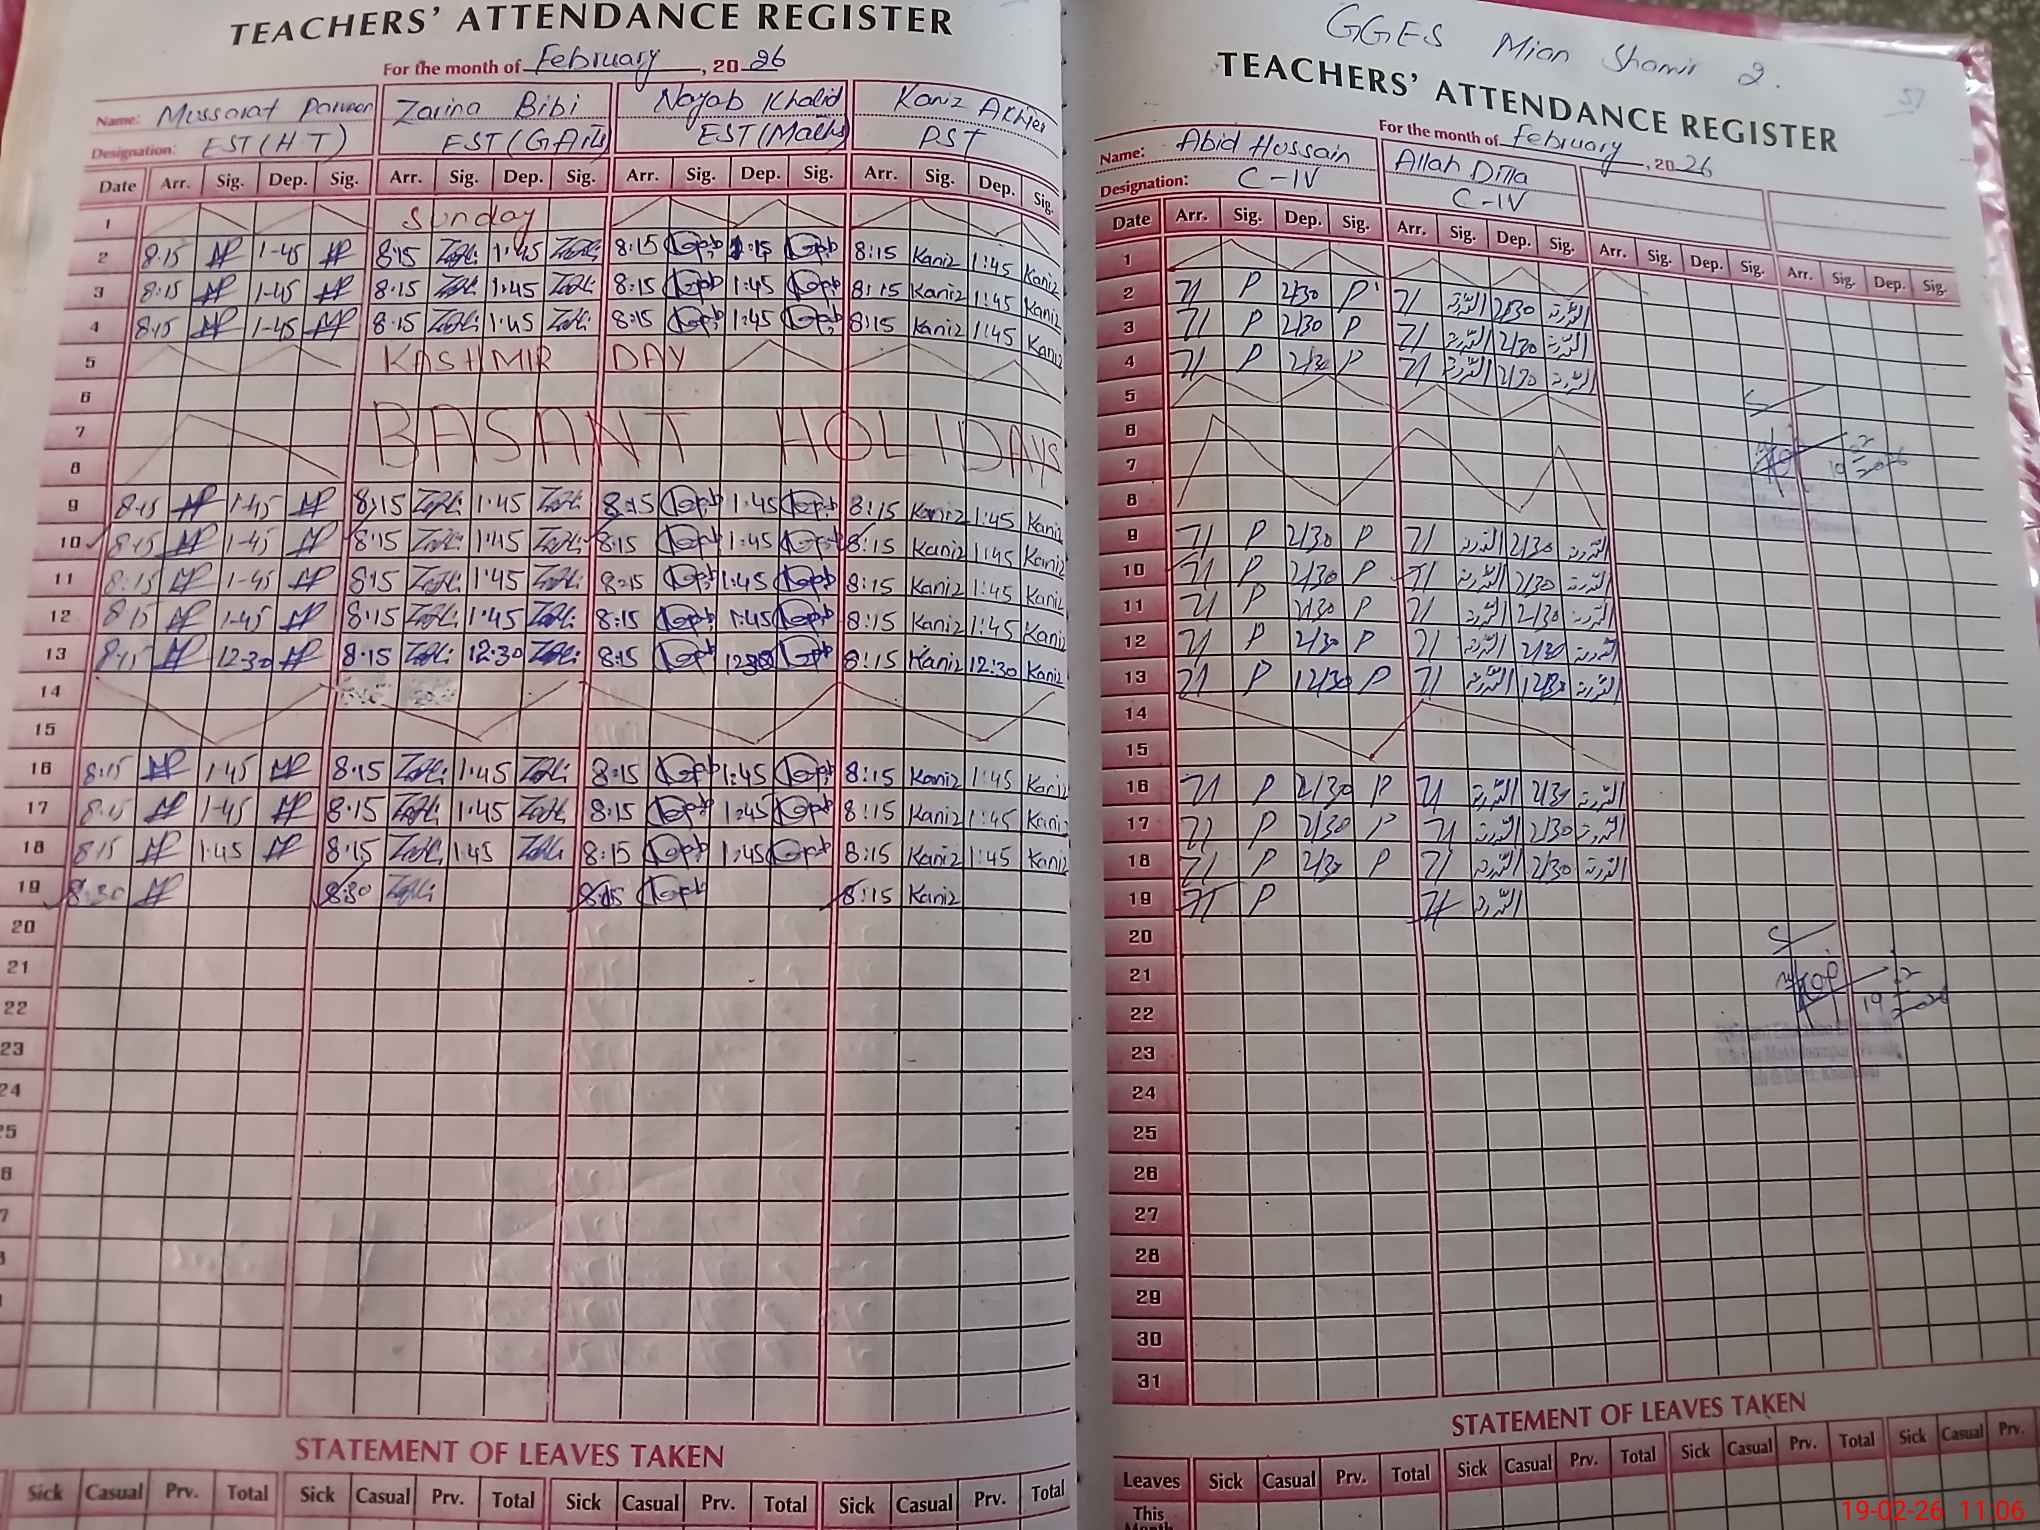 TEACHERS' ATTENDANCE REGISTER
For the month of February, 2026
Name: Mussarat Parveen Zarina Bibi Nayab Khalid Kaniz Akhter
Designation: EST (H T) EST (G Arts) EST (Maths) PST
Date Arr. Sig. Dep. Sig. Arr. Sig. Dep. Sig. Arr. Sig. Dep. Sig. Arr. Sig. Dep. Sig.
1 Sunday
2 8:15 1-45 8:15 1:45 8:15 1:15 8:15 Kaniz 1:45 Kaniz
3 8:15 1-45 8:15 1:45 8:15 1:45 8:15 Kaniz 1:45 Kaniz
4 8:15 1-45 8:15 1:45 8:15 1:45 8:15 Kaniz 1:45 Kaniz
5 KASHMIR DAY
6
7 BASANT HOLIDAYS
8
9 8:15 1-45 8:15 1:45 8:15 1:45 8:15 Kaniz 1:45 Kaniz
10 8:15 1-45 8:15 1:45 8:15 1:45 8:15 Kaniz 1:45 Kaniz
11 8:15 1-45 8:15 1:45 8:15 1:45 8:15 Kaniz 1:45 Kaniz
12 8:15 1-45 8:15 1:45 8:15 1:45 8:15 Kaniz 1:45 Kaniz
13 8:15 12:30 8:15 12:30 8:15 12:30 8:15 Kaniz 12:30 Kaniz
14
15
16 8:15 1-45 8:15 1:45 8:15 1:45 8:15 Kaniz 1:45 Kaniz
17 8:15 1-45 8:15 1:45 8:15 1:45 8:15 Kaniz 1:45 Kaniz
18 8:15 1:45 8:15 1:45 8:15 1:45 8:15 Kaniz 1:45 Kaniz
19 8:30 8:30 8:15 8:15 Kaniz
20
21
22
23
24
25
STATEMENT OF LEAVES TAKEN
Sick Casual Prv. Total Sick Casual Prv. Total Sick Casual Prv. Total Sick Casual Prv. Total
GGES Mian Shamir 2.
57
TEACHERS' ATTENDANCE REGISTER
For the month of February, 2026
Name: Abid Hussain Allah Ditta
Designation: C-IV C-IV
Date Arr. Sig. Dep. Sig. Arr. Sig. Dep. Sig. Arr. Sig. Dep. Sig. Arr. Sig. Dep. Sig.
1
2 7/ P 2/30 P 7/ 2/30
3 7/ P 2/30 P 7/ 2/30
4 7/ P 2/30 P 7/ 2/30
5
6
7
8
9 7/ P 2/30 P 7/ 2/30
10 7/ P 2/30 P 7/ 2/30
11 7/ P 2/30 P 7/ 2/30
12 7/ P 2/30 P 7/ 2/30
13 7/ P 12/30 P 7/ 12/30
14
15
16 7/ P 2/30 P 7/ 2/30
17 7/ P 2/30 P 7/ 2/30
18 7/ P 2/30 P 7/ 2/30
19 7/ P 7/
20
21
22
23
24
25
26
27
28
29
30
31
19 2 2026
19 2 2026
STATEMENT OF LEAVES TAKEN
Leaves Sick Casual Prv. Total Sick Casual Prv. Total Sick Casual Prv. Total Sick Casual Prv.
This
Month
19-02-26 11:06